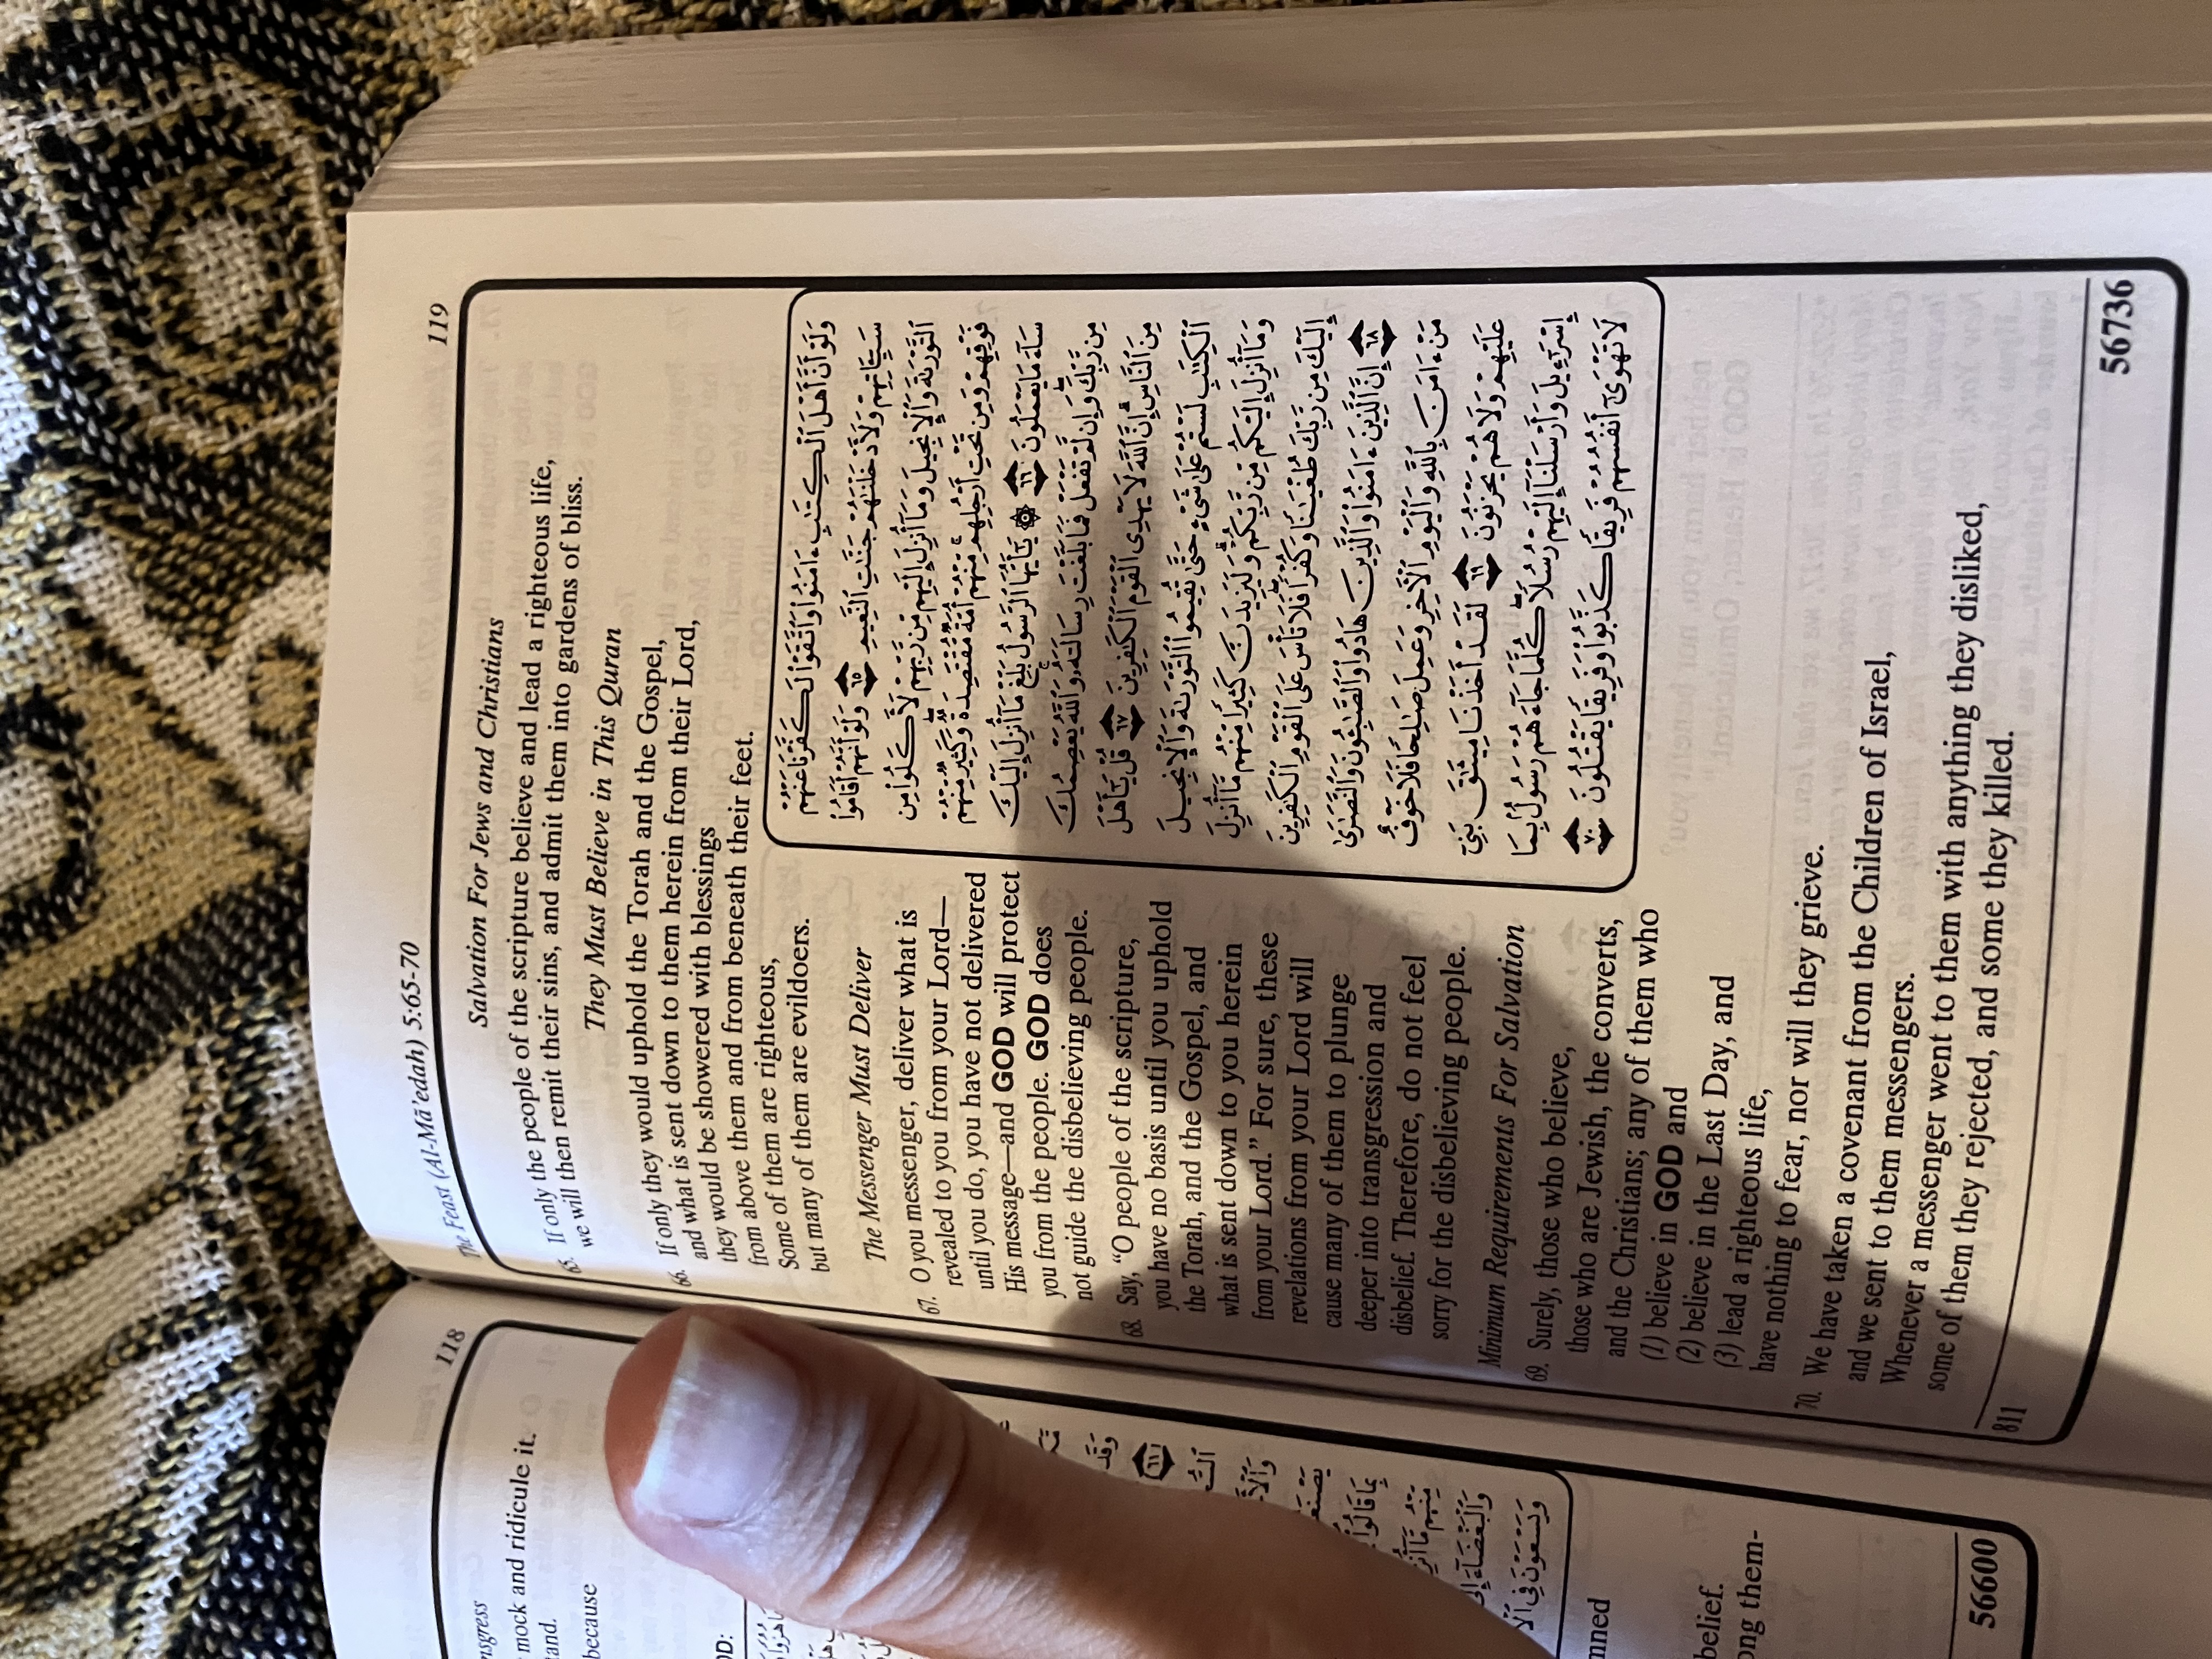 118
nsgress
mock and ridicule it.
tand.
because
OD:
nned
belief.
ong them-
56600
The Feast (Al-Mā'edah) 5:65-70
119
Salvation For Jews and Christians
65. If only the people of the scripture believe and lead a righteous life,
we will then remit their sins, and admit them into gardens of bliss.
They Must Believe in This Quran
66. If only they would uphold the Torah and the Gospel,
and what is sent down to them herein from their Lord,
they would be showered with blessings
from above them and from beneath their feet.
Some of them are righteous,
but many of them are evildoers.
The Messenger Must Deliver
67. O you messenger, deliver what is
revealed to you from your Lord—
until you do, you have not delivered
His message—and GOD will protect
you from the people. GOD does
not guide the disbelieving people.
68. Say, “O people of the scripture,
you have no basis until you uphold
the Torah, and the Gospel, and
what is sent down to you herein
from your Lord.” For sure, these
revelations from your Lord will
cause many of them to plunge
deeper into transgression and
disbelief. Therefore, do not feel
sorry for the disbelieving people.
Minimum Requirements For Salvation
69. Surely, those who believe,
those who are Jewish, the converts,
and the Christians; any of them who
(1) believe in GOD and
(2) believe in the Last Day, and
(3) lead a righteous life,
have nothing to fear, nor will they grieve.
70. We have taken a covenant from the Children of Israel,
and we sent to them messengers.
Whenever a messenger went to them with anything they disliked,
some of them they rejected, and some they killed.
وَلَوْ أَنَّ أَهْلَ ٱلْكِتَـٰبِ ءَامَنُوا۟ وَٱتَّقَوْا۟ لَكَفَّرْنَا عَنْهُمْ
سَيِّـَٔاتِهِمْ وَلَأَدْخَلْنَـٰهُمْ جَنَّـٰتِ ٱلنَّعِيمِ ٦٥ وَلَوْ أَنَّهُمْ أَقَامُوا۟
ٱلتَّوْرَىٰةَ وَٱلْإِنجِيلَ وَمَآ أُنزِلَ إِلَيْهِم مِّن رَّبِّهِمْ لَأَكَلُوا۟ مِن
فَوْقِهِمْ وَمِن تَحْتِ أَرْجُلِهِم ۚ مِّنْهُمْ أُمَّةٌ مُّقْتَصِدَةٌ ۖ وَكَثِيرٌ مِّنْهُمْ
سَآءَ مَا يَعْمَلُونَ ٦٦ ۞ يَـٰٓأَيُّهَا ٱلرَّسُولُ بَلِّغْ مَآ أُنزِلَ إِلَيْكَ
مِن رَّبِّكَ ۖ وَإِن لَّمْ تَفْعَلْ فَمَا بَلَّغْتَ رِسَالَتَهُۥ ۚ وَٱللَّهُ يَعْصِمُكَ
مِنَ ٱلنَّاسِ ۗ إِنَّ ٱللَّهَ لَا يَهْدِى ٱلْقَوْمَ ٱلْكَـٰفِرِينَ ٦٧ قُلْ يَـٰٓأَهْلَ
ٱلْكِتَـٰبِ لَسْتُمْ عَلَىٰ شَىْءٍ حَتَّىٰ تُقِيمُوا۟ ٱلتَّوْرَىٰةَ وَٱلْإِنجِيلَ
وَمَآ أُنزِلَ إِلَيْكُم مِّن رَّبِّكُمْ ۗ وَلَيَزِيدَنَّ كَثِيرًا مِّنْهُم مَّآ أُنزِلَ
إِلَيْكَ مِن رَّبِّكَ طُغْيَـٰنًا وَكُفْرًا ۖ فَلَا تَأْسَ عَلَى ٱلْقَوْمِ ٱلْكَـٰفِرِينَ
٦٨ إِنَّ ٱلَّذِينَ ءَامَنُوا۟ وَٱلَّذِينَ هَادُوا۟ وَٱلصَّـٰبِـُٔونَ وَٱلنَّصَـٰرَىٰ
مَنْ ءَامَنَ بِٱللَّهِ وَٱلْيَوْمِ ٱلْـَٔاخِرِ وَعَمِلَ صَـٰلِحًا فَلَا خَوْفٌ
عَلَيْهِمْ وَلَا هُمْ يَحْزَنُونَ ٦٩ لَقَدْ أَخَذْنَا مِيثَـٰقَ بَنِىٓ
إِسْرَٰٓءِيلَ وَأَرْسَلْنَآ إِلَيْهِمْ رُسُلًا ۖ كُلَّمَا جَآءَهُمْ رَسُولٌۢ بِمَا
لَا تَهْوَىٰٓ أَنفُسُهُمْ فَرِيقًا كَذَّبُوا۟ وَفَرِيقًا يَقْتُلُونَ ٧٠
811
56736